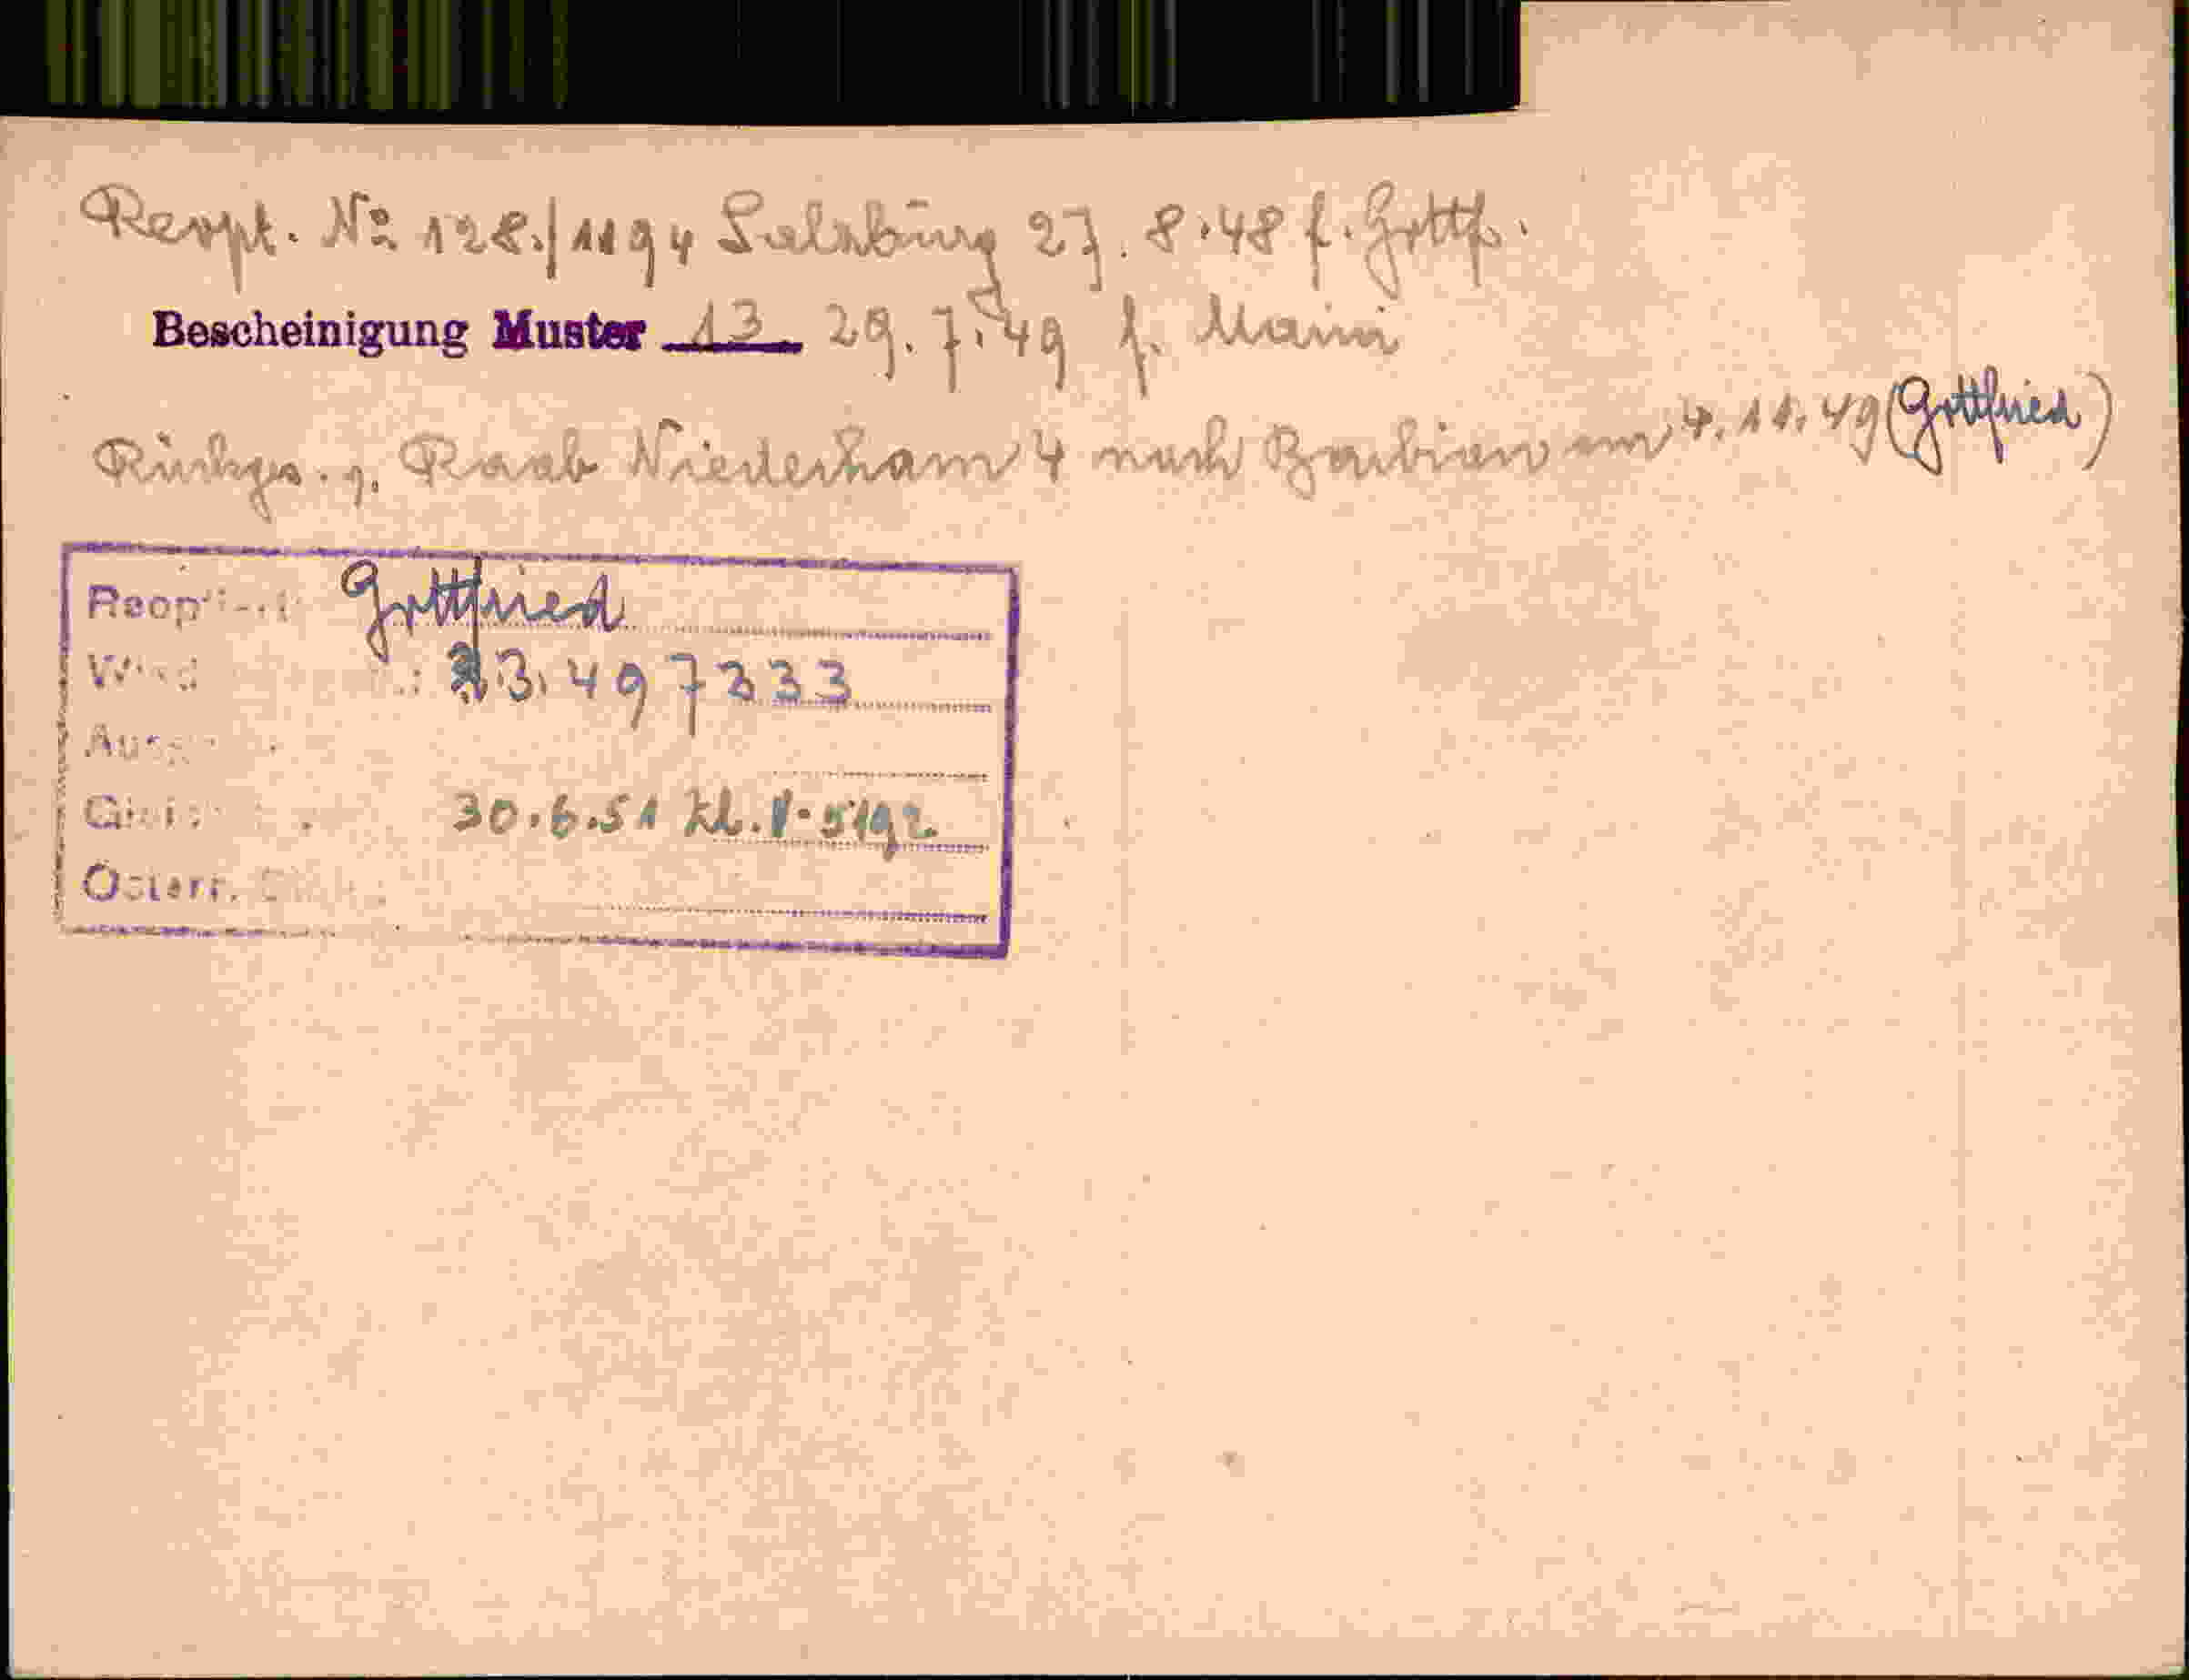 Reopt. No 128./1194 Salzburg 27. 8.48 f. Gottfr.
Bescheinigung Muster 13 29.7.49 f. Maini
Rückges. g. Raab Niederham 4 nach Barbian am 4.11.49 (Gottfried)
Gottfried
3.497333
30.6.51 Kl.
Österr.